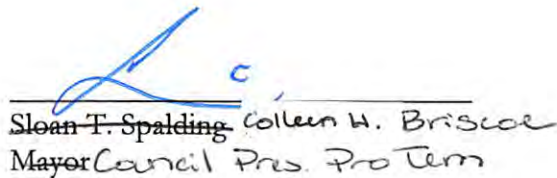 Sloan T. Spalding Colleen H. Briscoe
Mayor Council Pres. Pro Tem